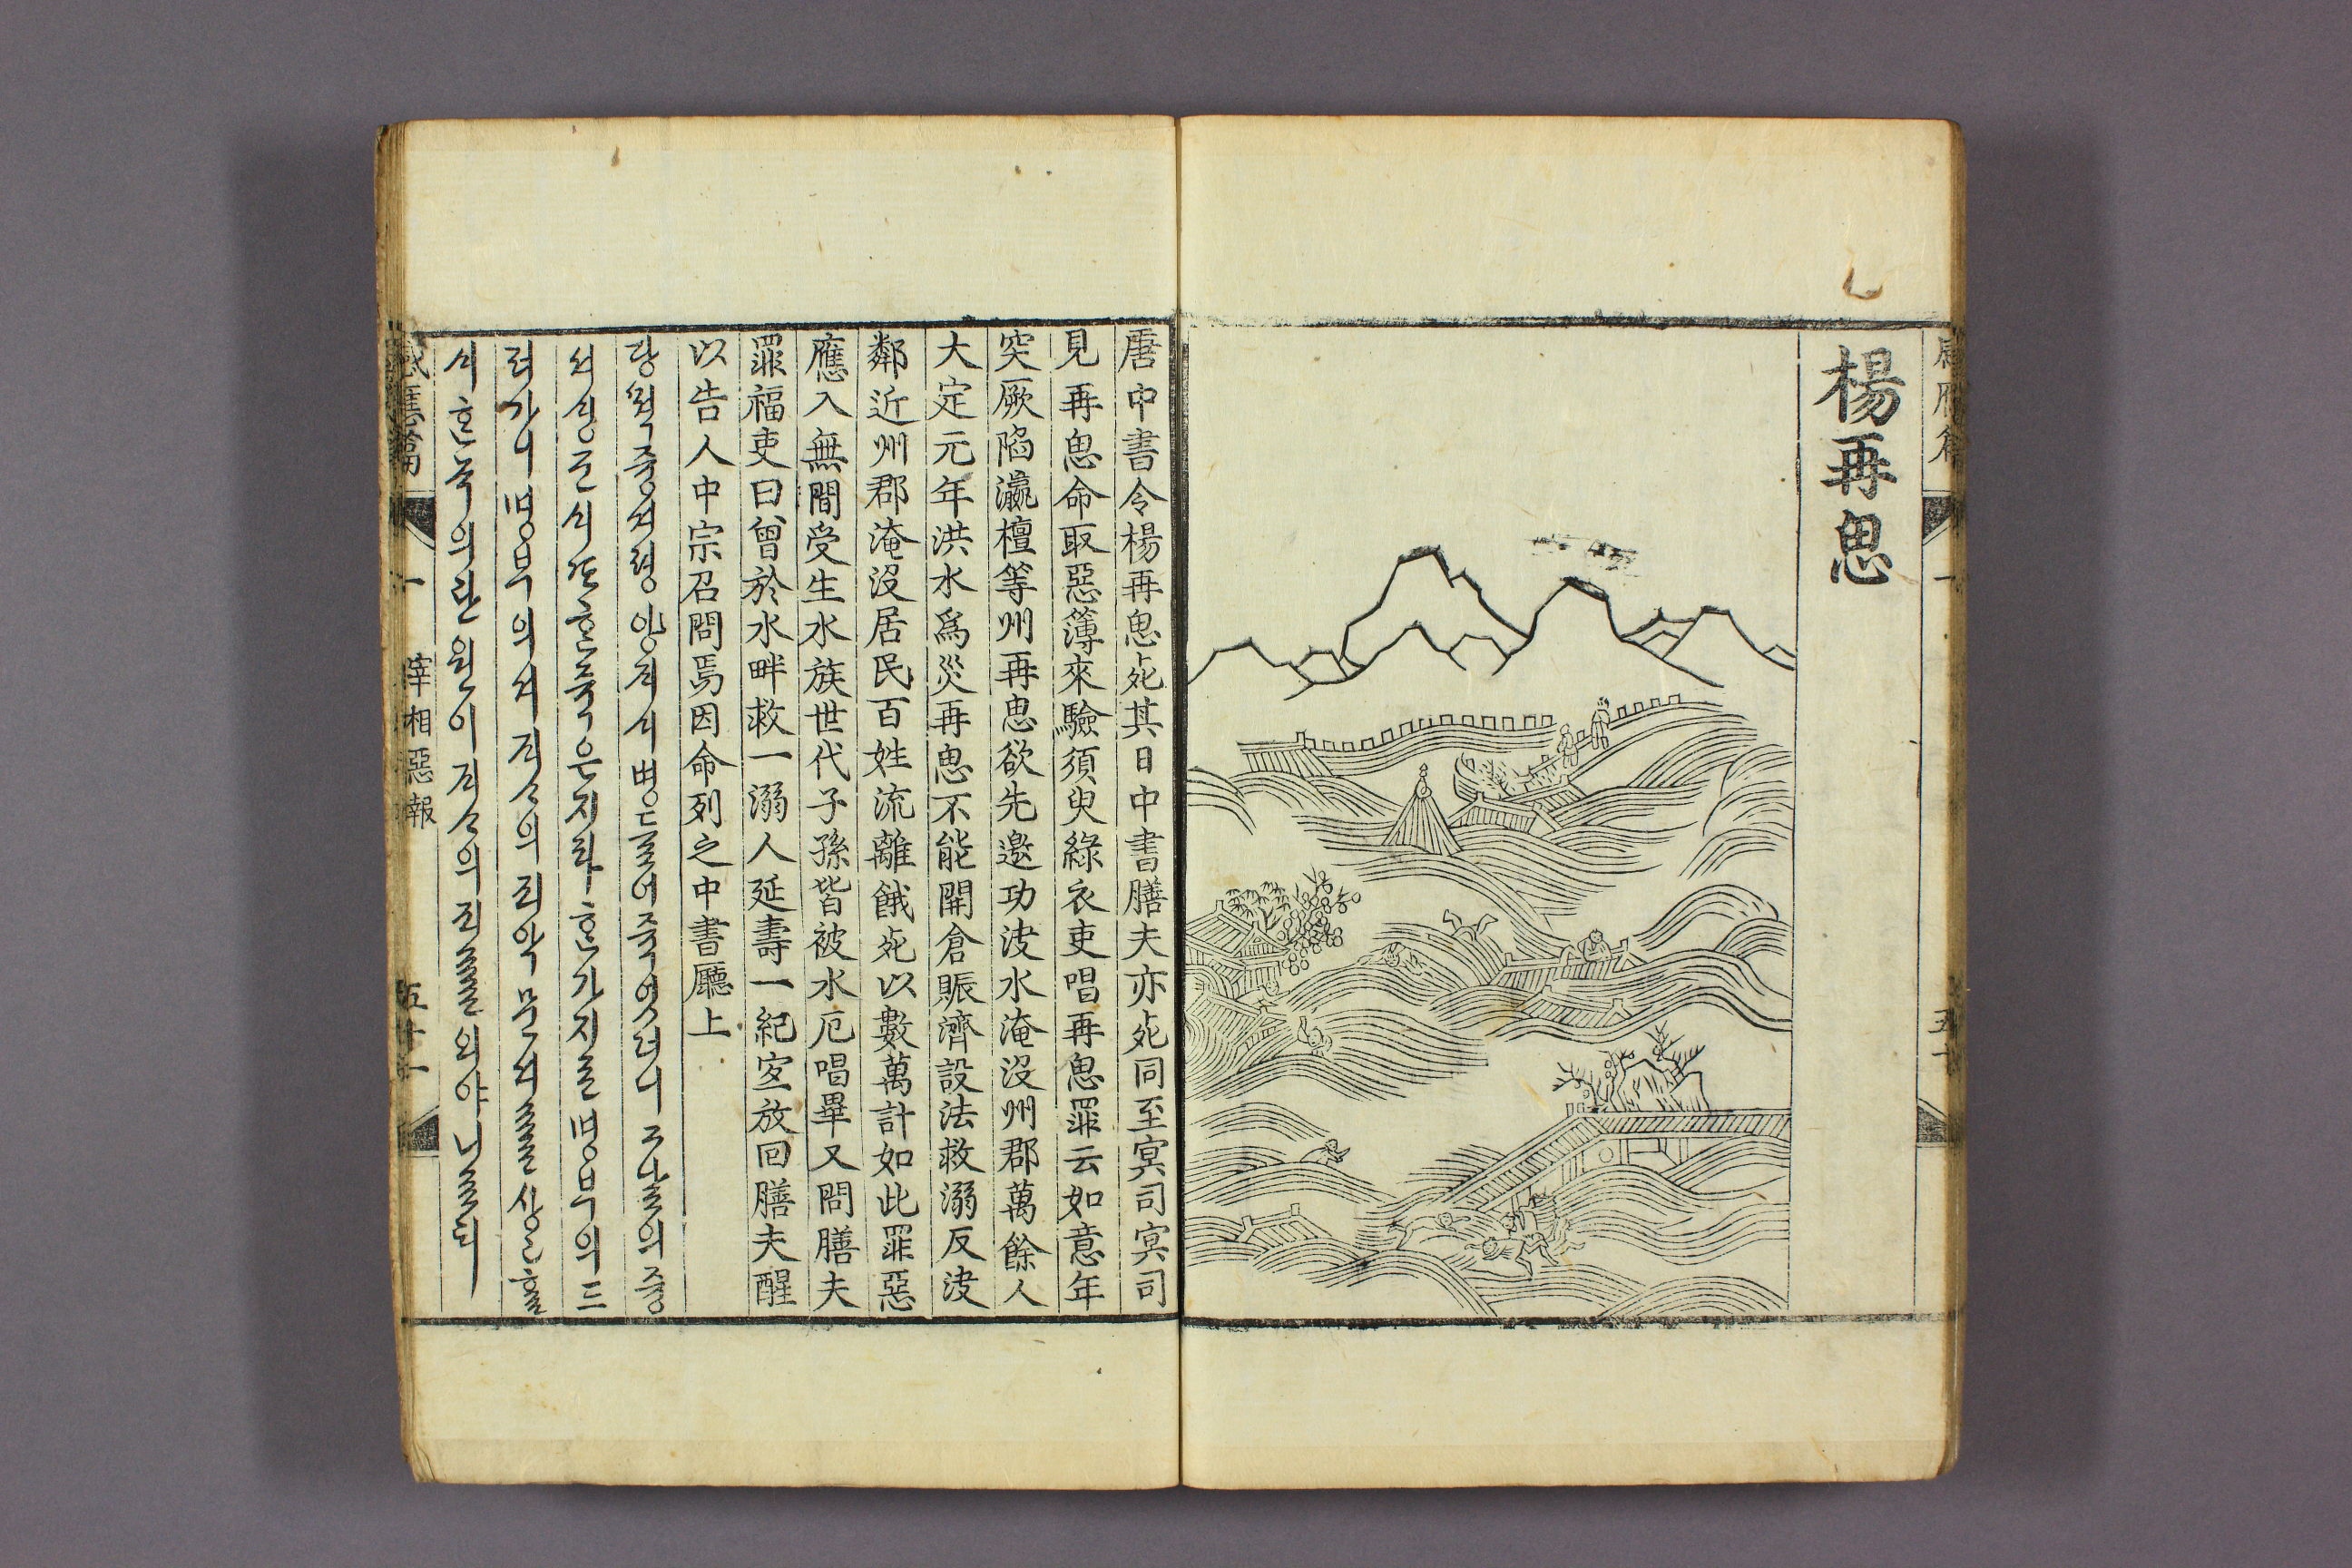 感應篇 一 五十
楊再思
唐中書令楊再思死其日中書膳夫亦死同至冥司冥司
見再思命取惡簿來驗須臾綠衣吏唱再思罪云如意年
突厥陷瀛檀等州再思欲先邀功決水淹沒州郡萬餘人
大定元年洪水爲災再思不能開倉賑濟設法救溺反決
鄰近州郡淹沒居民百姓流離餓死以數萬計如此罪惡
應入無間受生水族世代子孫皆被水厄唱畢又問膳夫
罪福吏曰曾於水畔救一溺人延壽一紀宜放回膳夫醒
以告人中宗召問焉因命列之中書廳上
당ᄶᅥᆨ즁셔령양ᄌᆡᄉᆡ병들어죽엇더니그날의즁
셔싱군ᄉᆡᄯᅩᄒᆞᆫ죽은지라ᄒᆞᆫ가지로명부의드
러가니명부의셔ᄌᆡᄉᆞ의죄악문셔를샹고ᄒᆞᆯ
ᄉᆡᄒᆞᆫ녹의관원이ᄌᆡᄉᆞ의죄를외야니르되
感應篇 一 宰相惡報 五十一